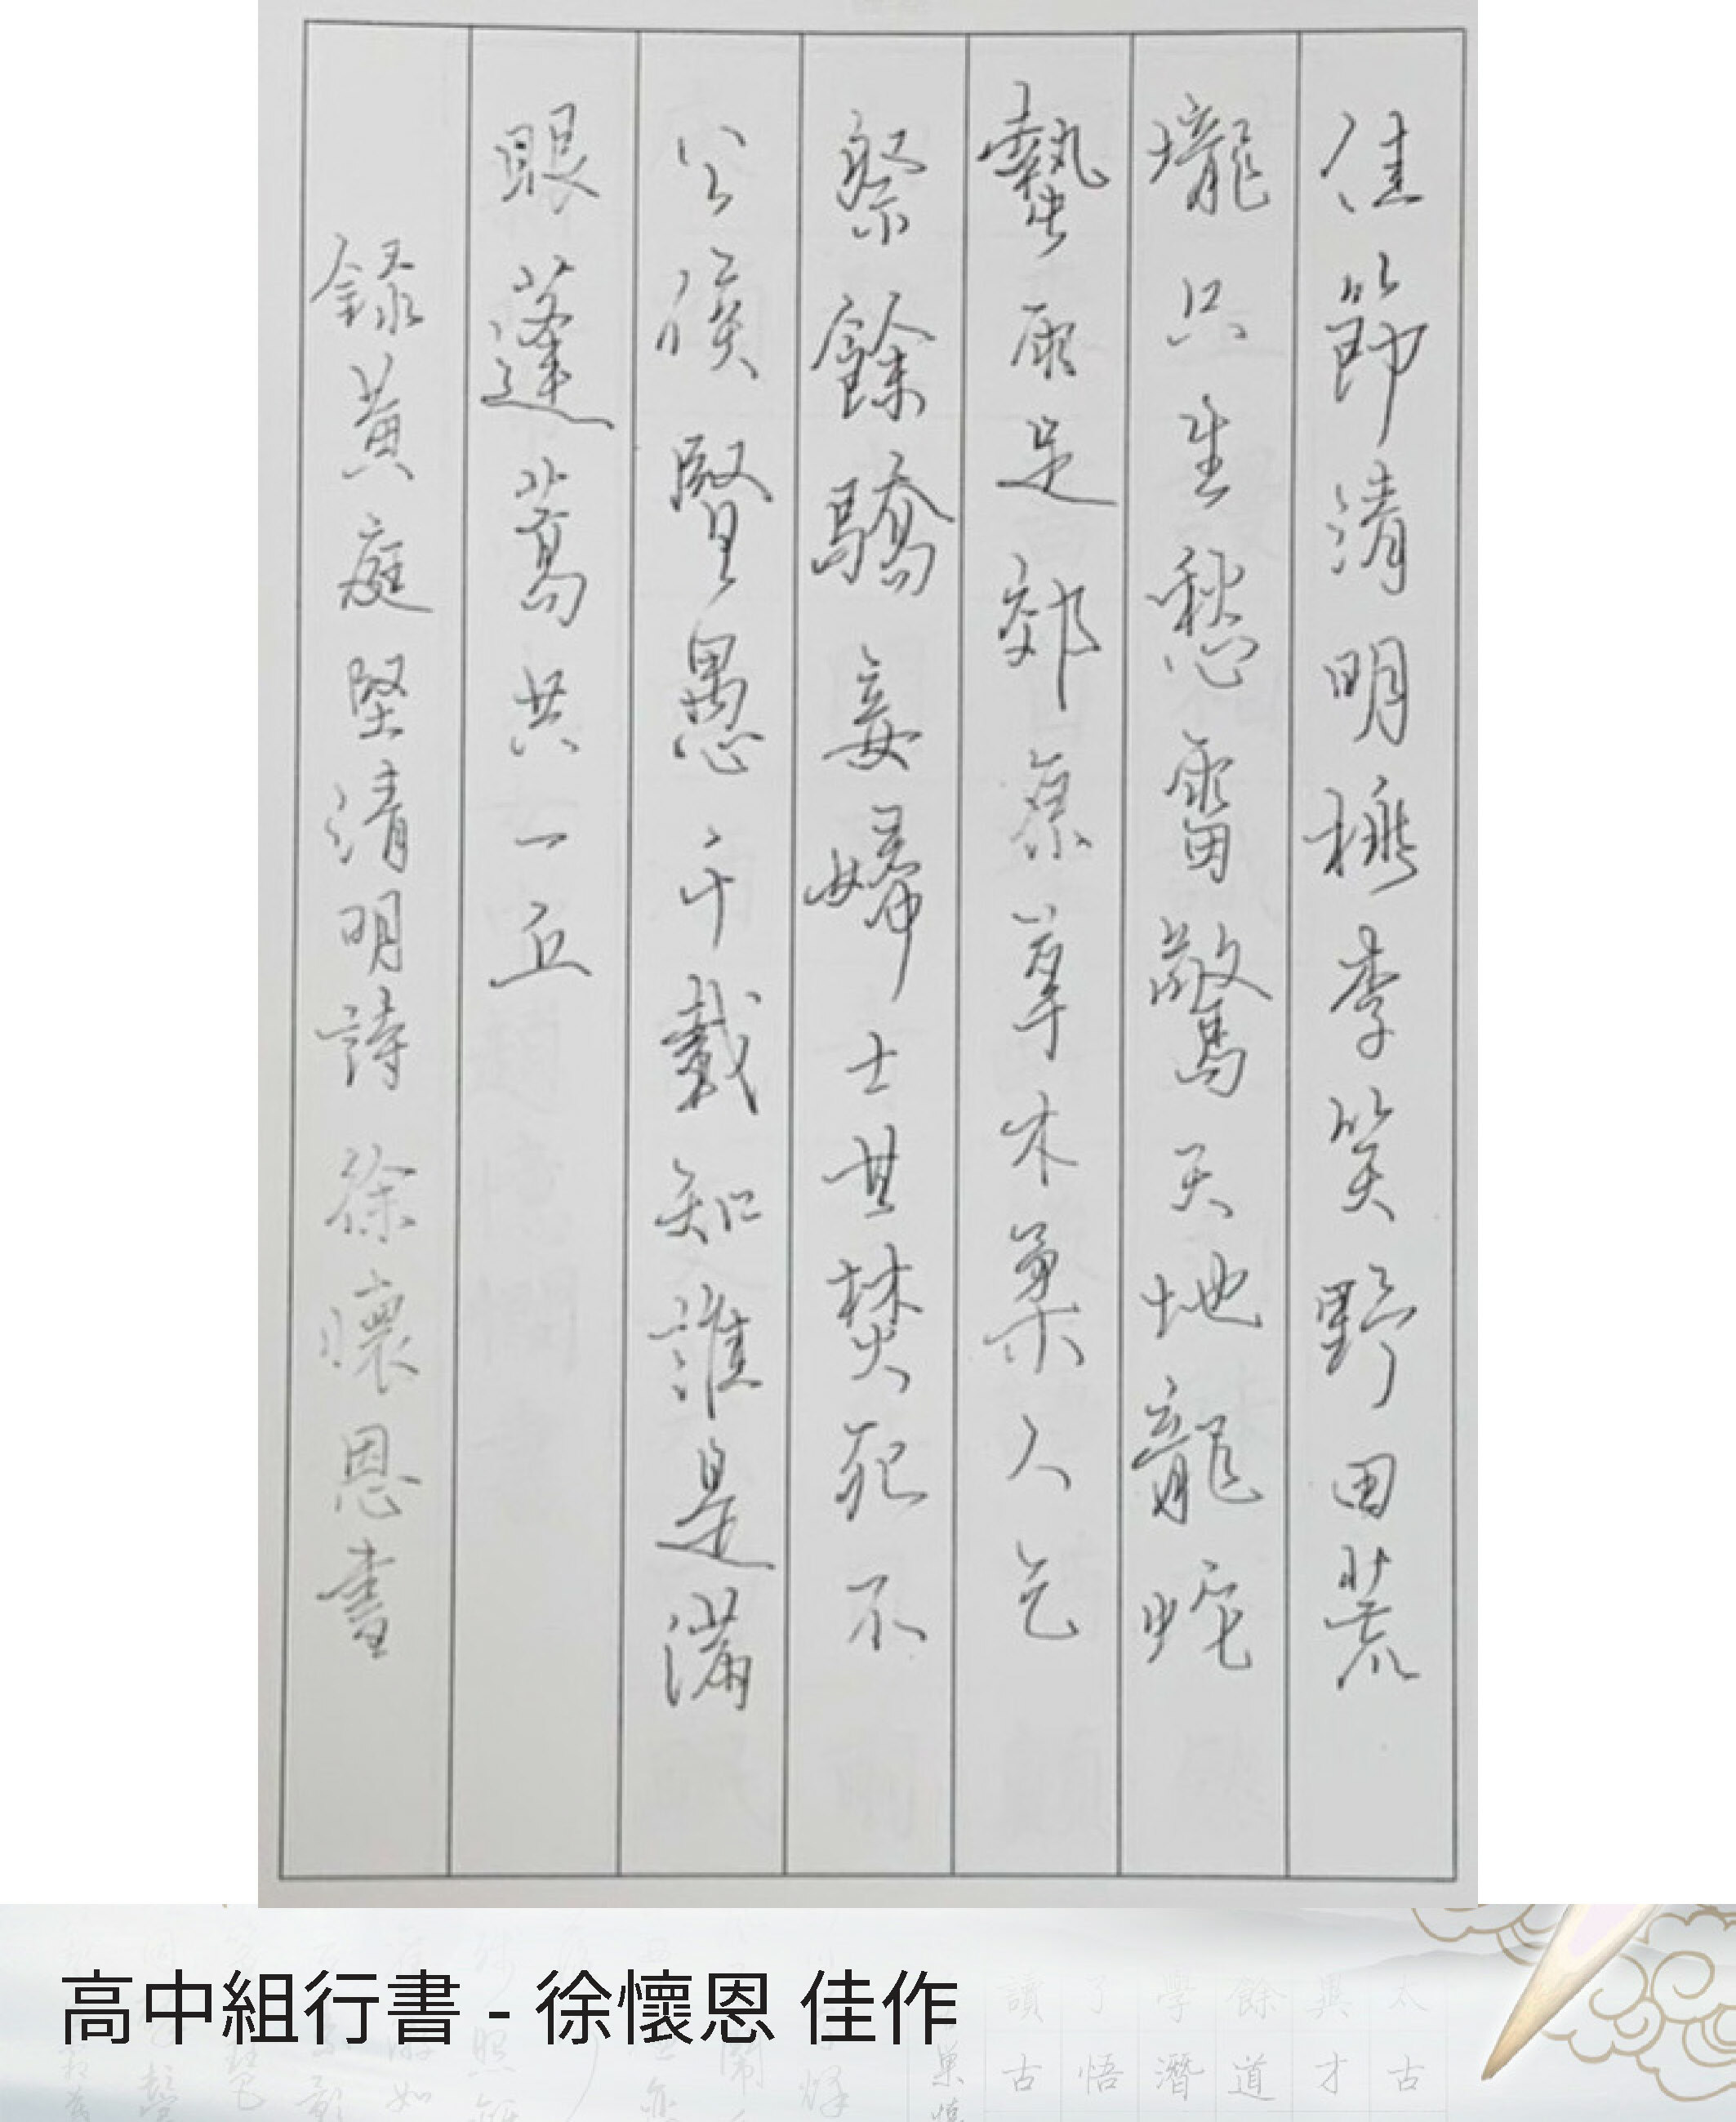 佳節清明桃李笑野田荒
壠只生愁雷驚天地龍蛇
蟄雨足郊原草木柔人乞
祭餘驕妾婦士甘焚死不
公侯賢愚千載知誰是滿
眼蓬蒿共一丘
錄黃庭堅清明詩徐懷恩書
高中組行書 - 徐懷恩 佳作